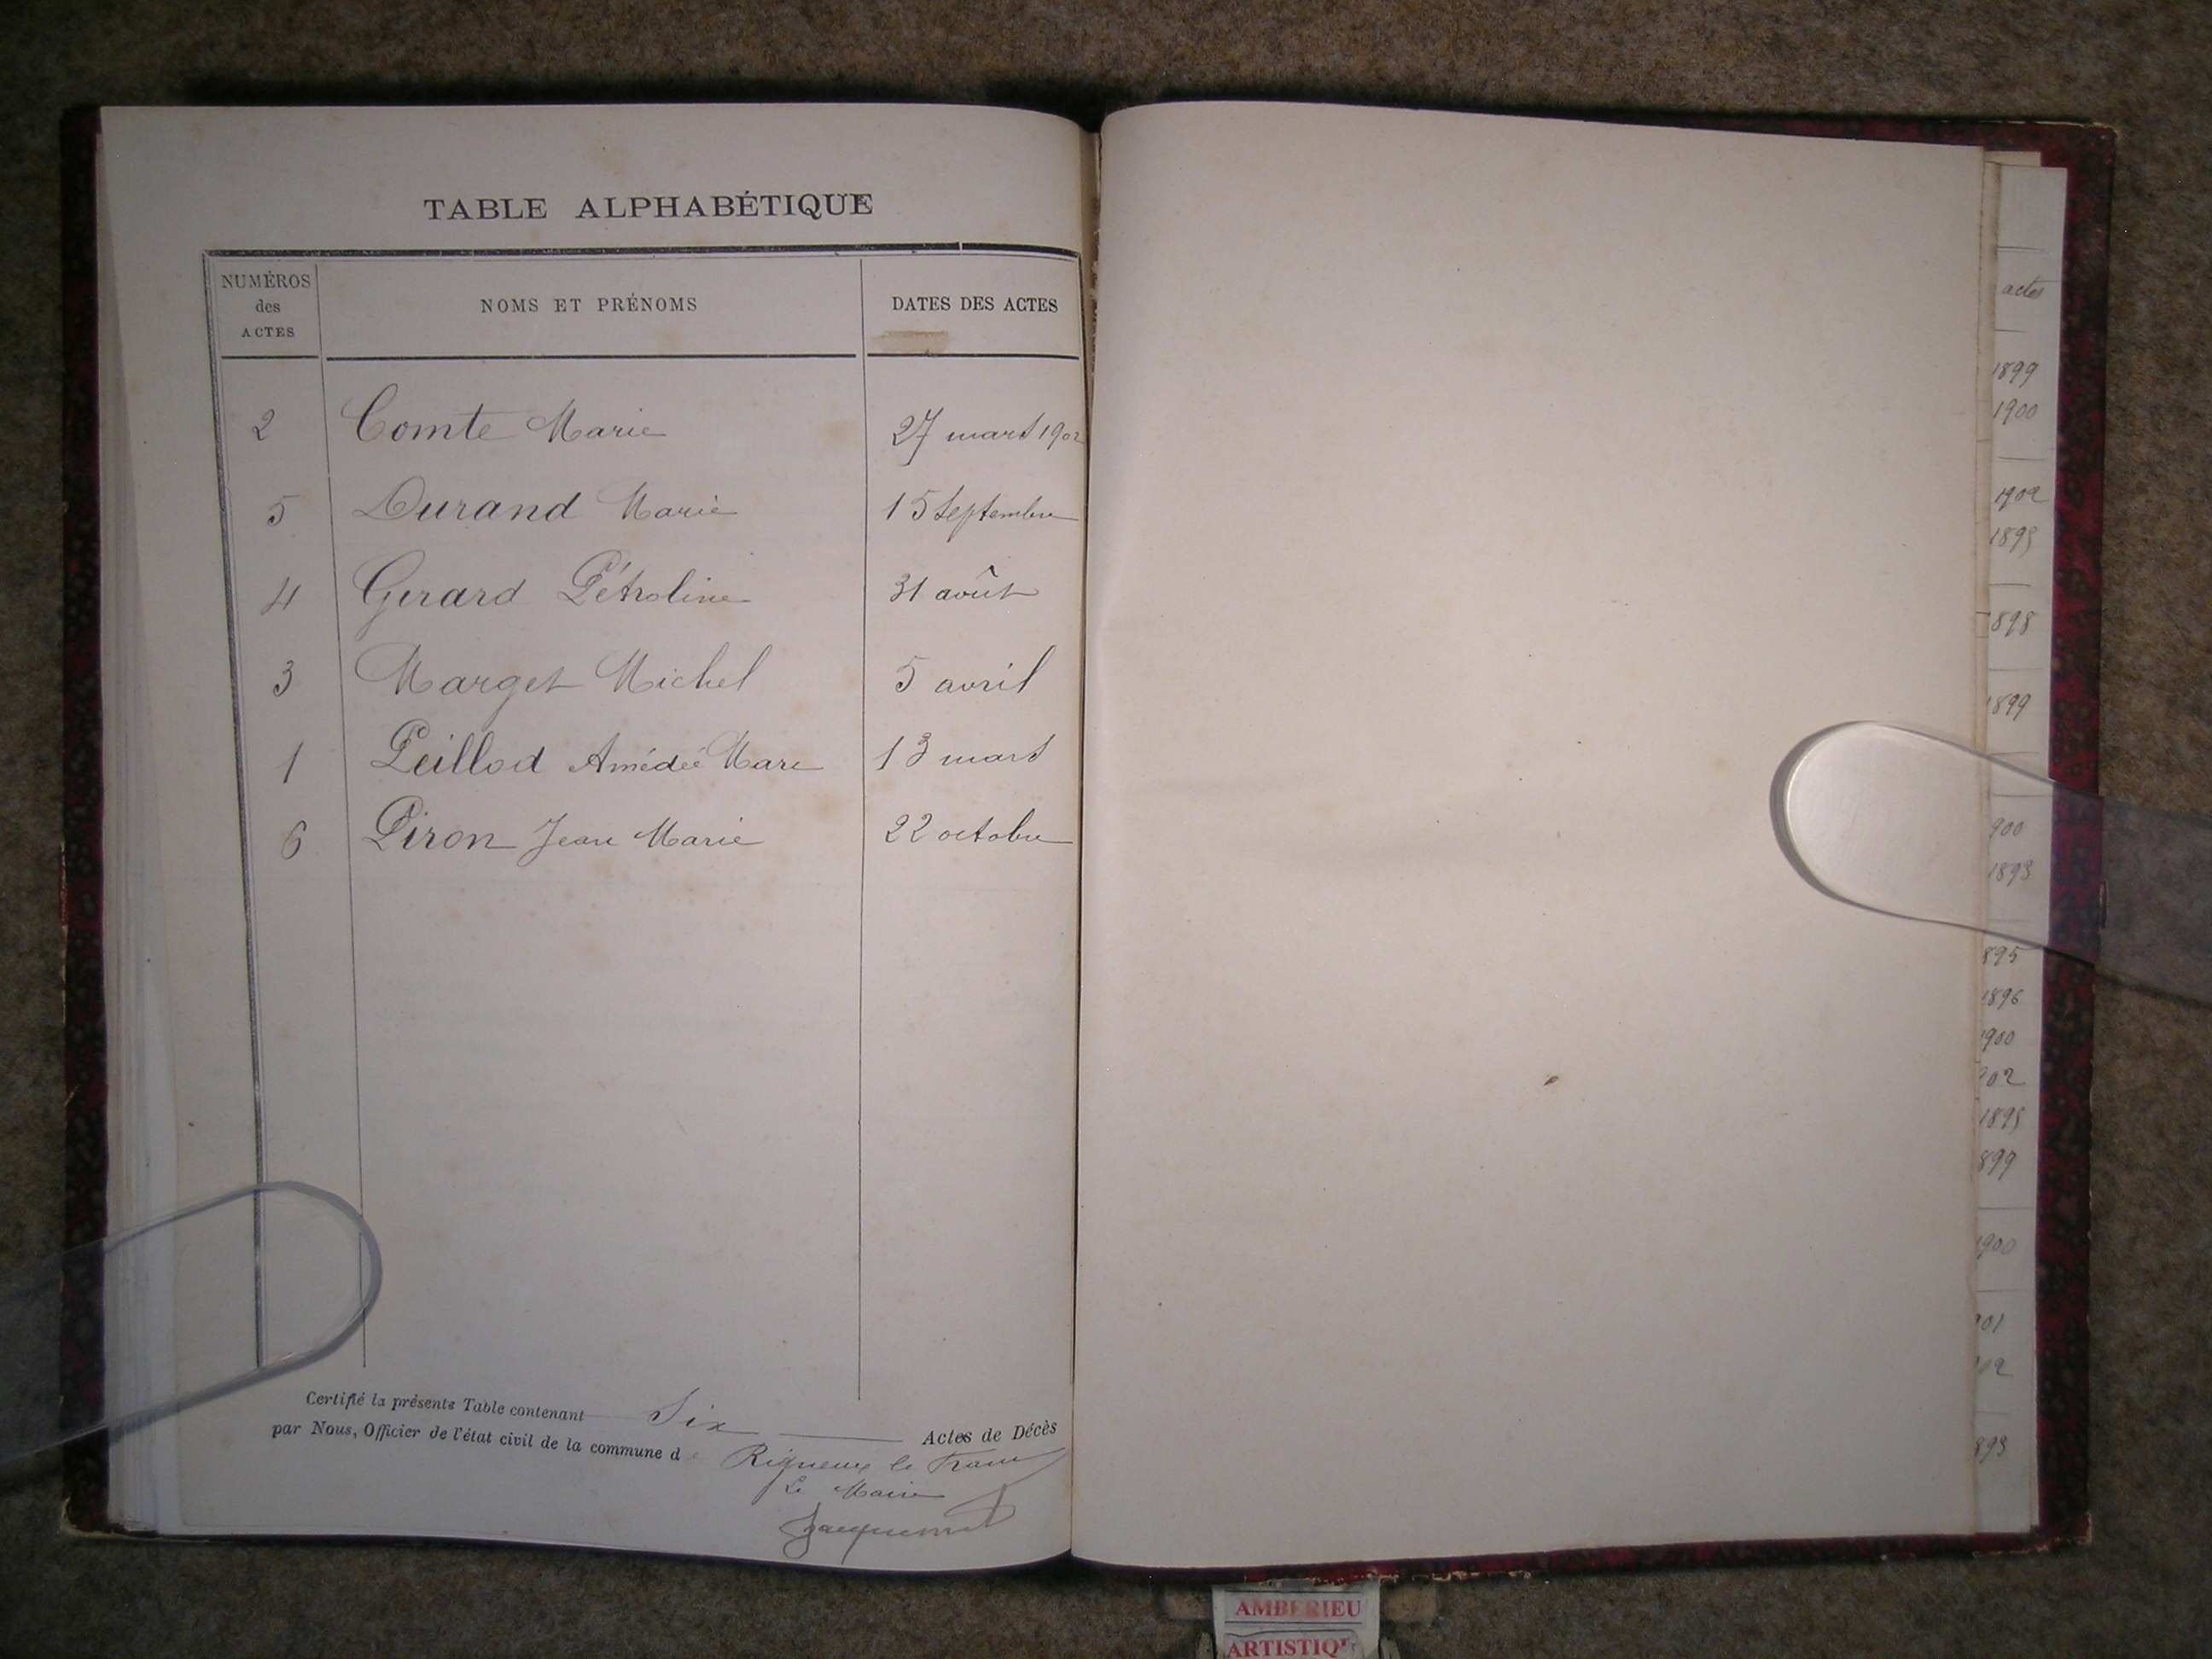 TABLE ALPHABÉTIQUE
NUMÉROS des ACTES
NOMS ET PRÉNOMS
DATES DES ACTES
2 Comte Marie 27 mars 1902
5 Durand Marie 15 septembre
4 Gerard Pétroline 31 août
3 Marget Michel 5 avril
1 Peillod Amédée Marc 13 mars
6 Piron Jean Marie 22 octobre
Certifié la présente Table contenant Six Actes de Décès
par Nous, Officier de l'état civil de la commune de Rigneux le Franc
Le Maire
Jacquemet
actes
1899
1900
1902
1893
898
1899
900
1893
895
1896
1900
902
1895
899
1900
901
02
893
AMBERIEU
ARTISTIQU